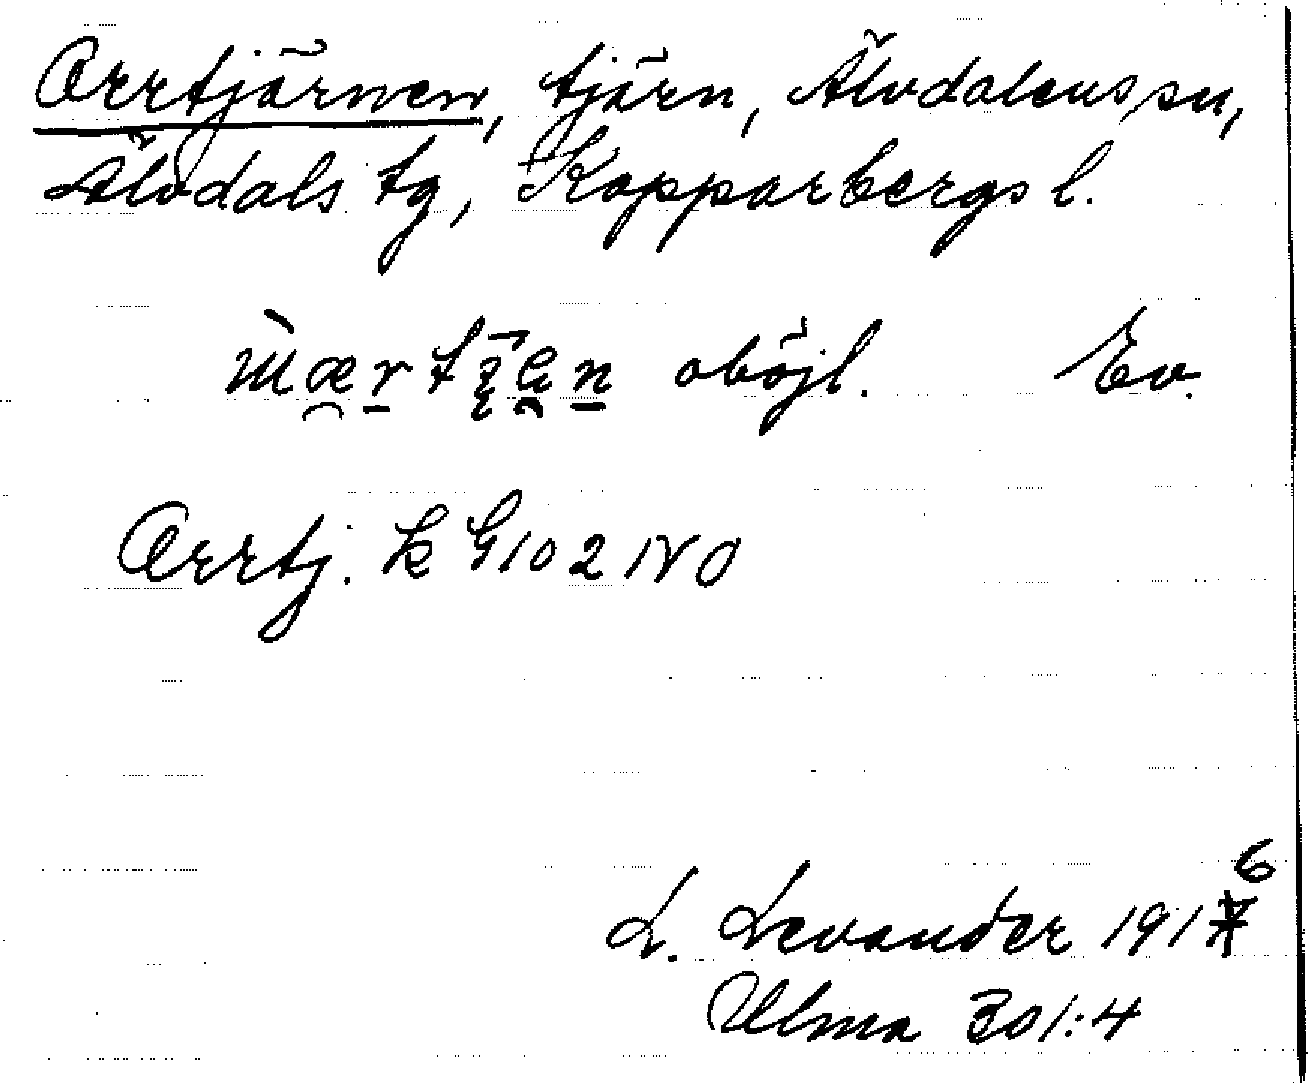 Orrtjärnen, tjärn, Älvdalens sn,
Älvdals tg, Kopparbergs l.
oböjl. Ev.
Orrtj. k G 102 NO
L. Levander 1916
Ulma 301:4